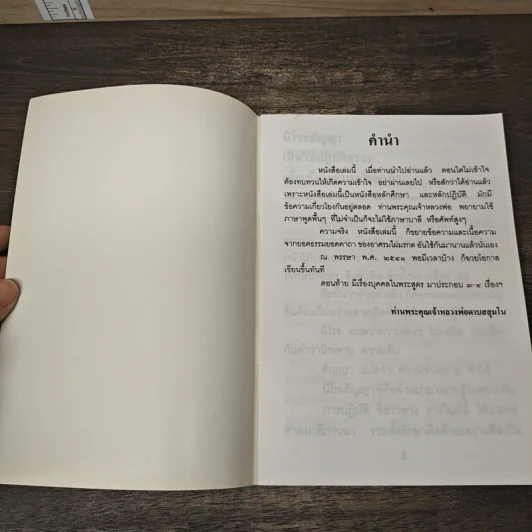 คำนำ
หนังสือเล่มนี้ เมื่อท่านนำไปอ่านแล้ว ตอนใดไม่เข้าใจ
ต้องทบทวนให้เกิดความเข้าใจ อย่าผ่านเลยไป หรือสักว่าได้อ่านแล้ว
เพราะหนังสือเล่มนี้เป็นหนังสือหลักศึกษา และหลักปฏิบัติ มักมี
ข้อความเกี่ยวโยงกันอยู่ตลอด ท่านพระคุณเจ้าหลวงพ่อ พยายามใช้
ภาษาพูดพื้นๆ ที่ไม่จำเป็นก็จะไม่ใช้ภาษาบาลี หรือศัพท์สูงๆ
ความจริง หนังสือเล่มนี้ ก็ขยายข้อความและเนื้อความ
จากยอดธรรมยอดคาถา ของอาศรมไผ่มรกต อันใช้กันมานานแล้วนั่นเอง
ณ พรรษา พ.ศ. ๒๕๔๑ พอมีเวลาบ้าง ก็ฉวยโอกาส
เขียนขึ้นทันที
ตอนท้าย มีเรื่องบุคคลในพระสูตร มาประกอบ ๓-๔ เรื่องฯ
ท่านพระคุณเจ้าหลวงพ่อดาบสสุมโน